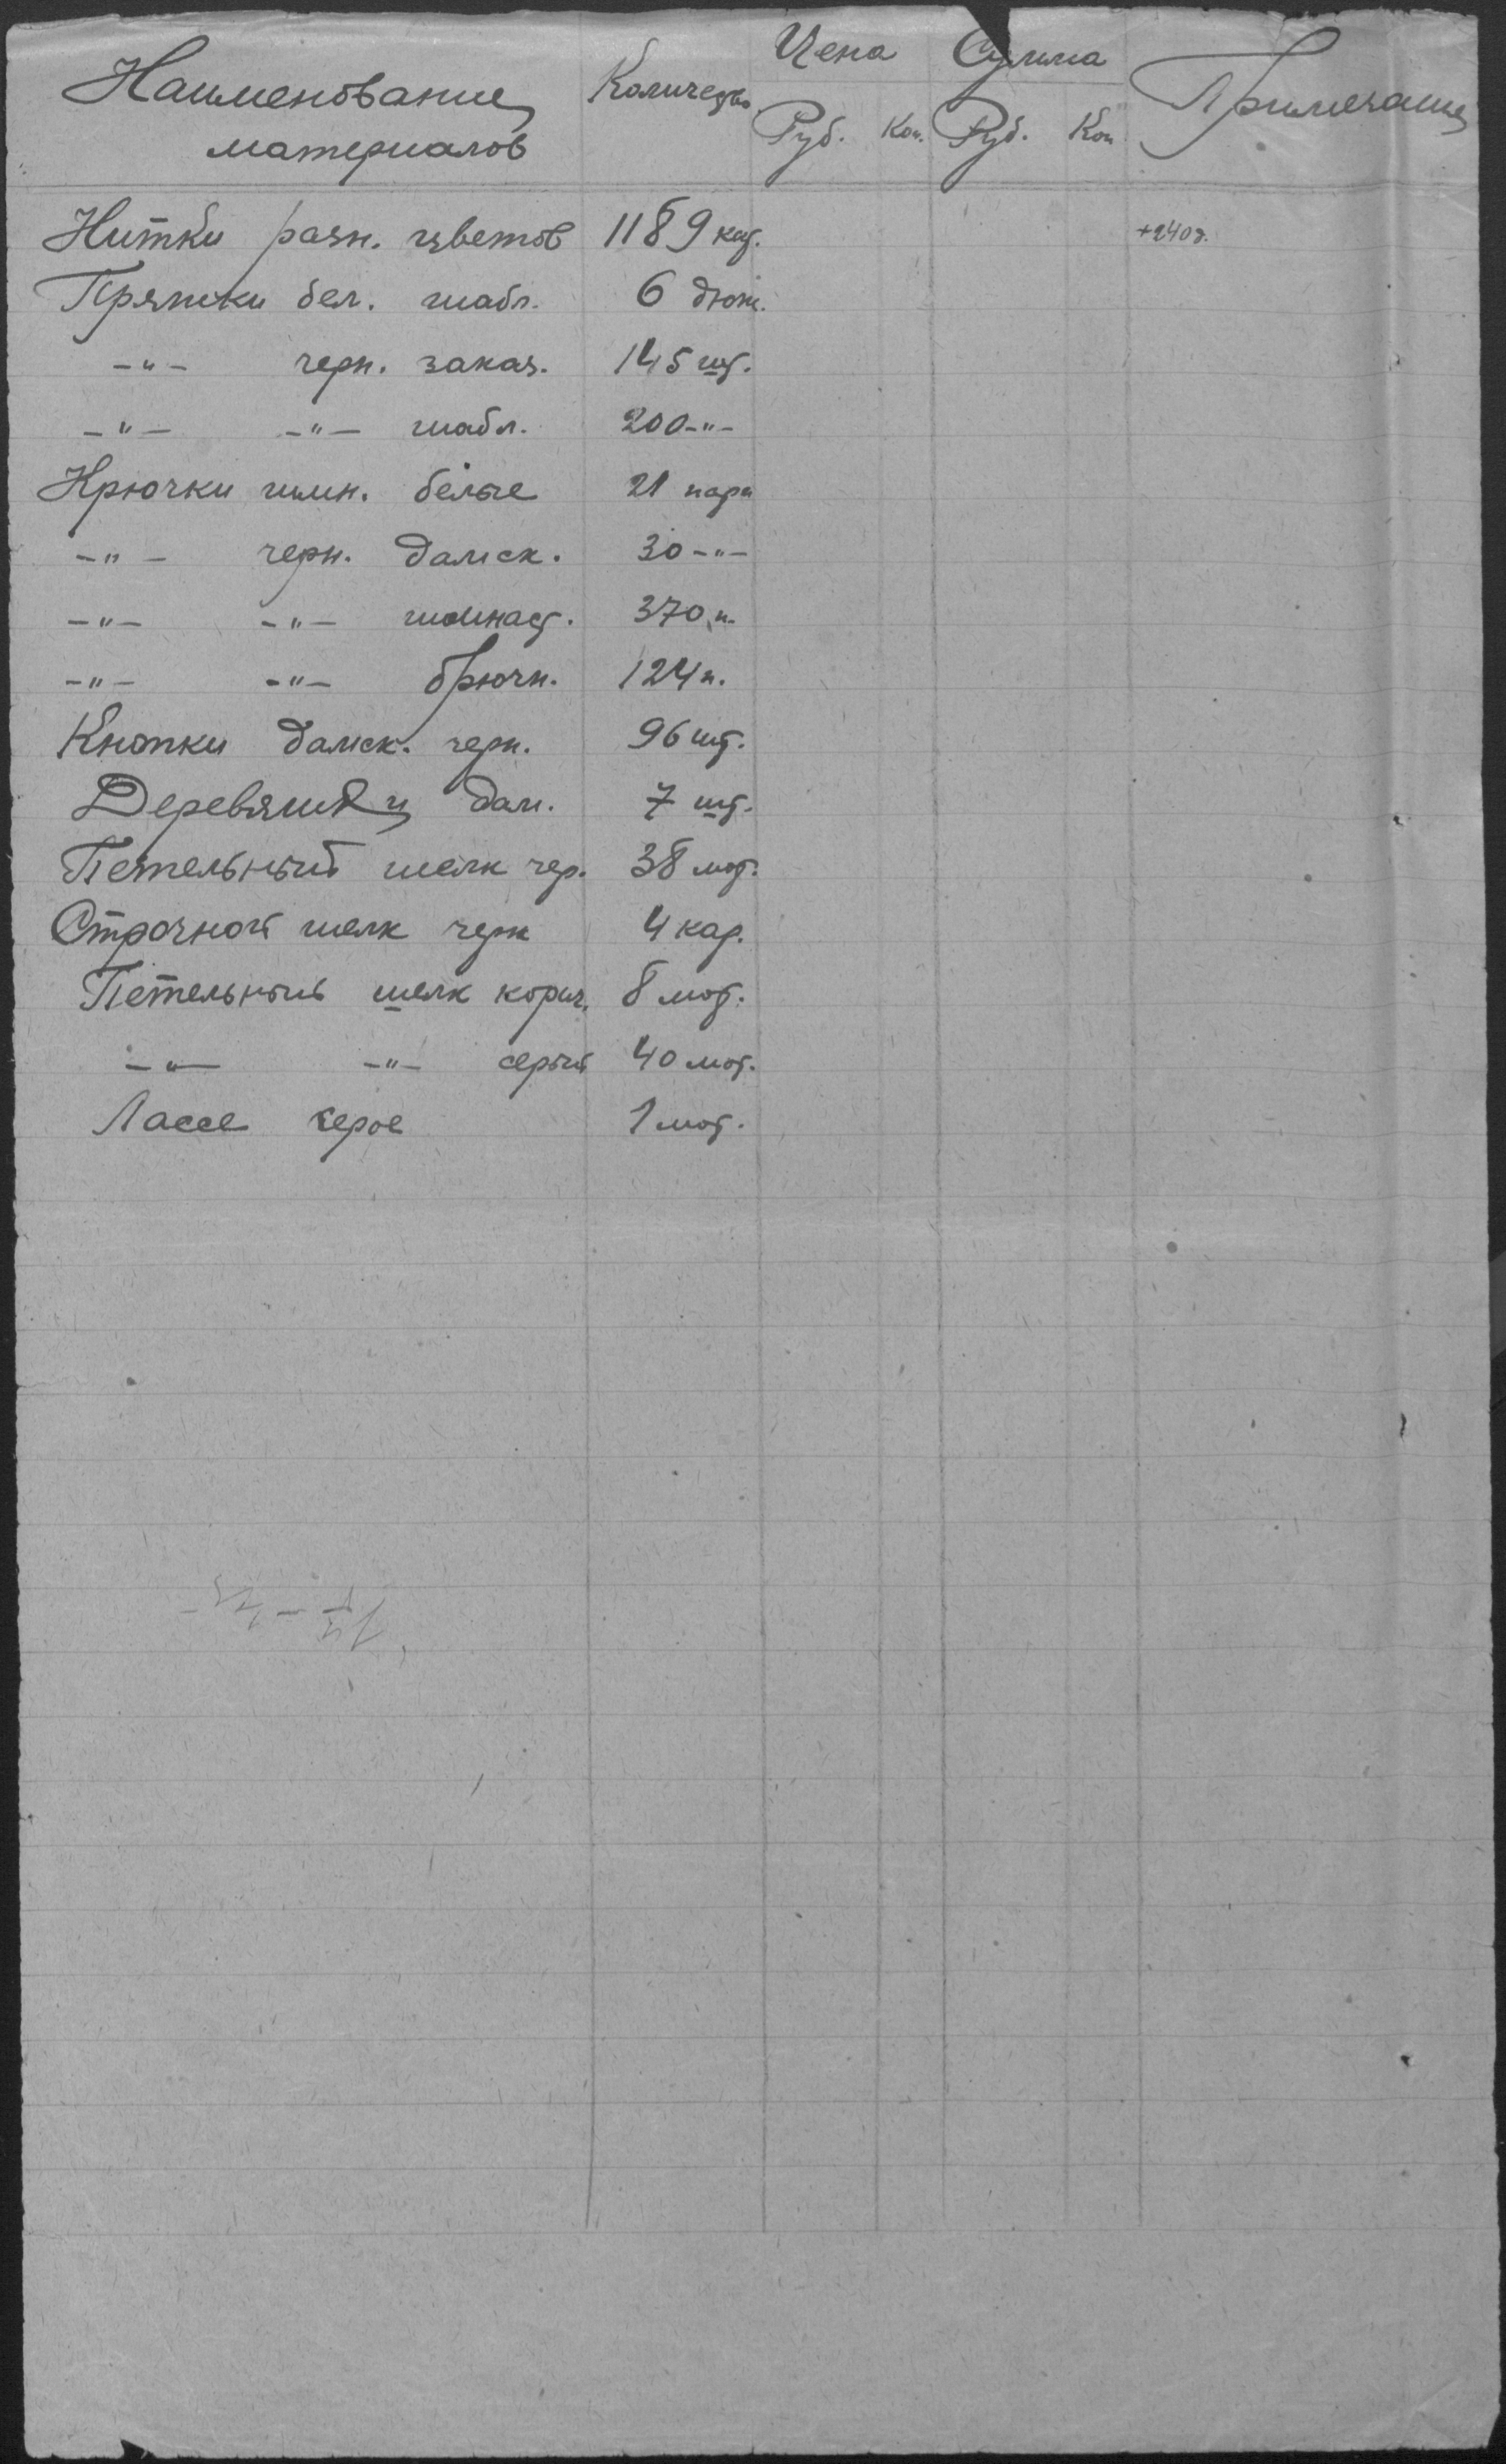 Цена Сумма
Наименование Количество Примечание
материалов Руб. Коп. Руб. Коп
Нитки разн. цветов 1189 кат. +240
Пряжки бел. шабл. 6 дюж.
-"- черн. заказ. 145 шт.
-"- -"- шабл. 200 -"-
Крючки шин. белые 21 пара
-"- черн. дамск. 30 -"-
-"- -"- 370 п.
-"- -"- брючн. 124 п.
Кнопки дамск. черн. 96 шт.
Деревяшки дам. 7 шт.
Петельный шелк чер. 38 мот.
Строчной шелк черн 4 кат.
Петельный шелк корич. 8 мот.
-"- -"- серый 40 мот.
Лассе серое 1 мот.